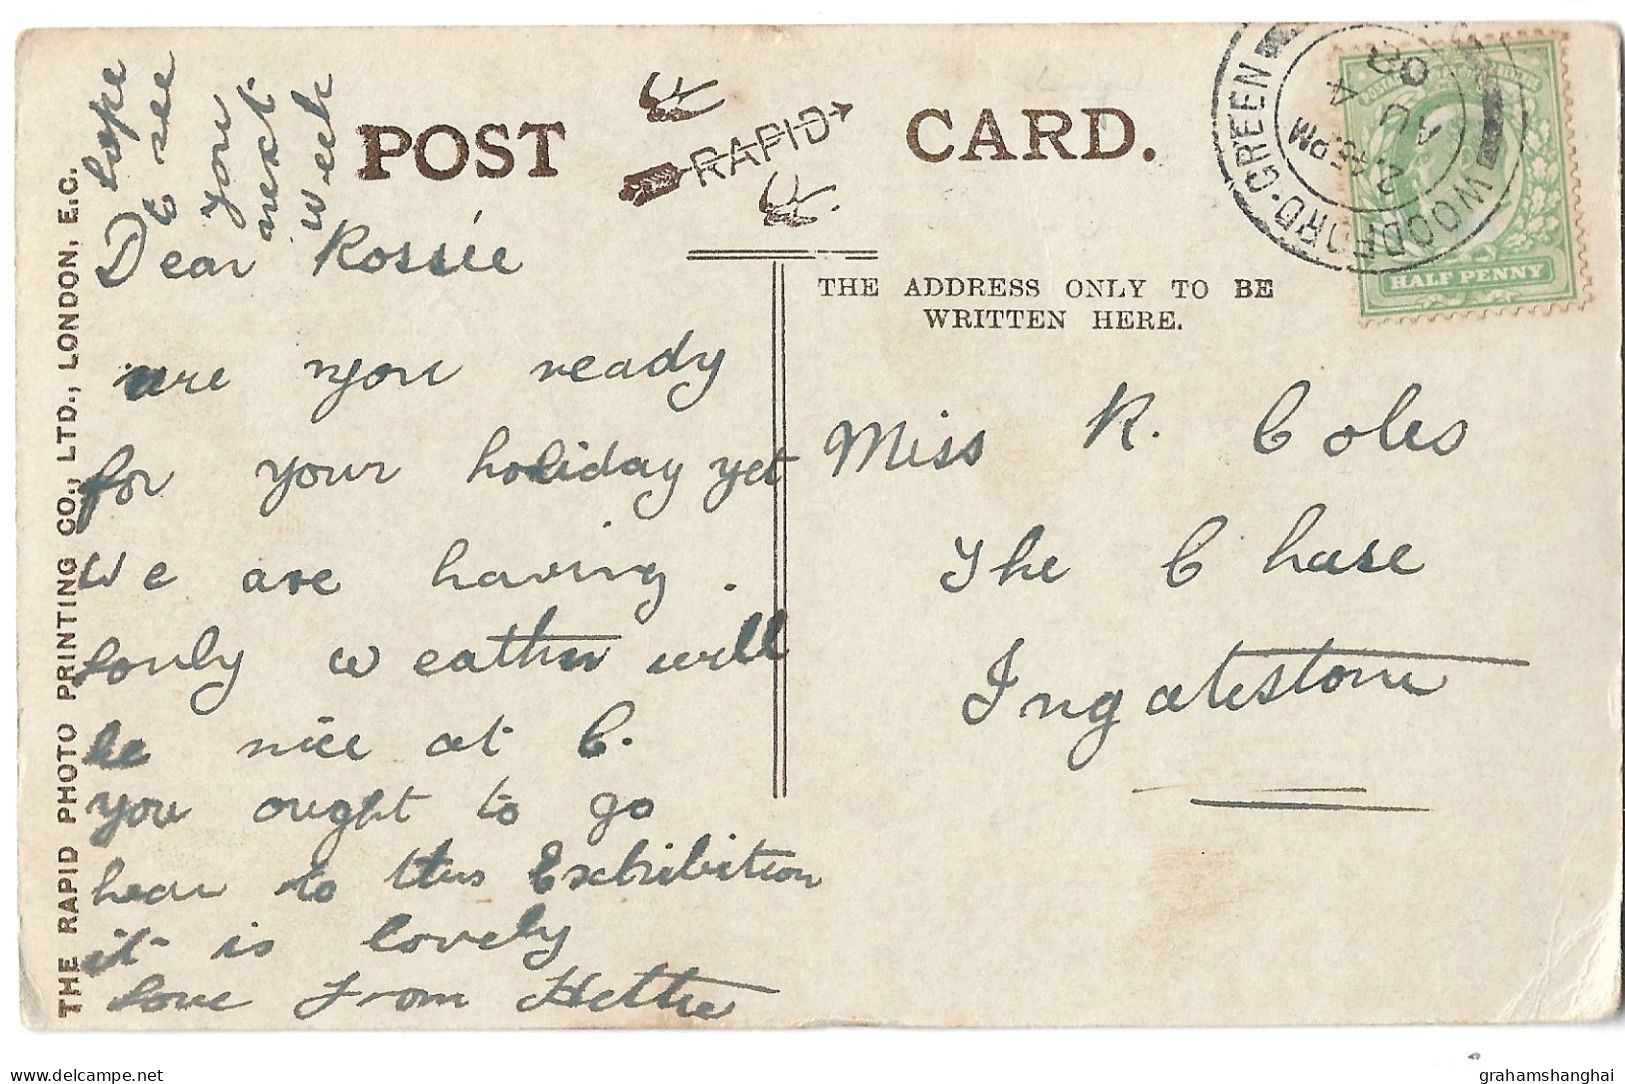 hope
I see
you
next
week
POST RAPID CARD.
Dear Rossie
are you ready
for your holiday yet
We are having
lovly weather will
be nice at C.
you ought to go
hear to this Exhibition
it is lovely
love from Hettie
THE RAPID PHOTO PRINTING CO., LTD., LONDON, E.C.
THE ADDRESS ONLY TO BE
WRITTEN HERE.
Miss R. Coles
The Chase
Ingatestone
WOODFORD·GREEN
2.45 PM
AU 4
08
HALF PENNY
delcampe.net
grahamshanghai